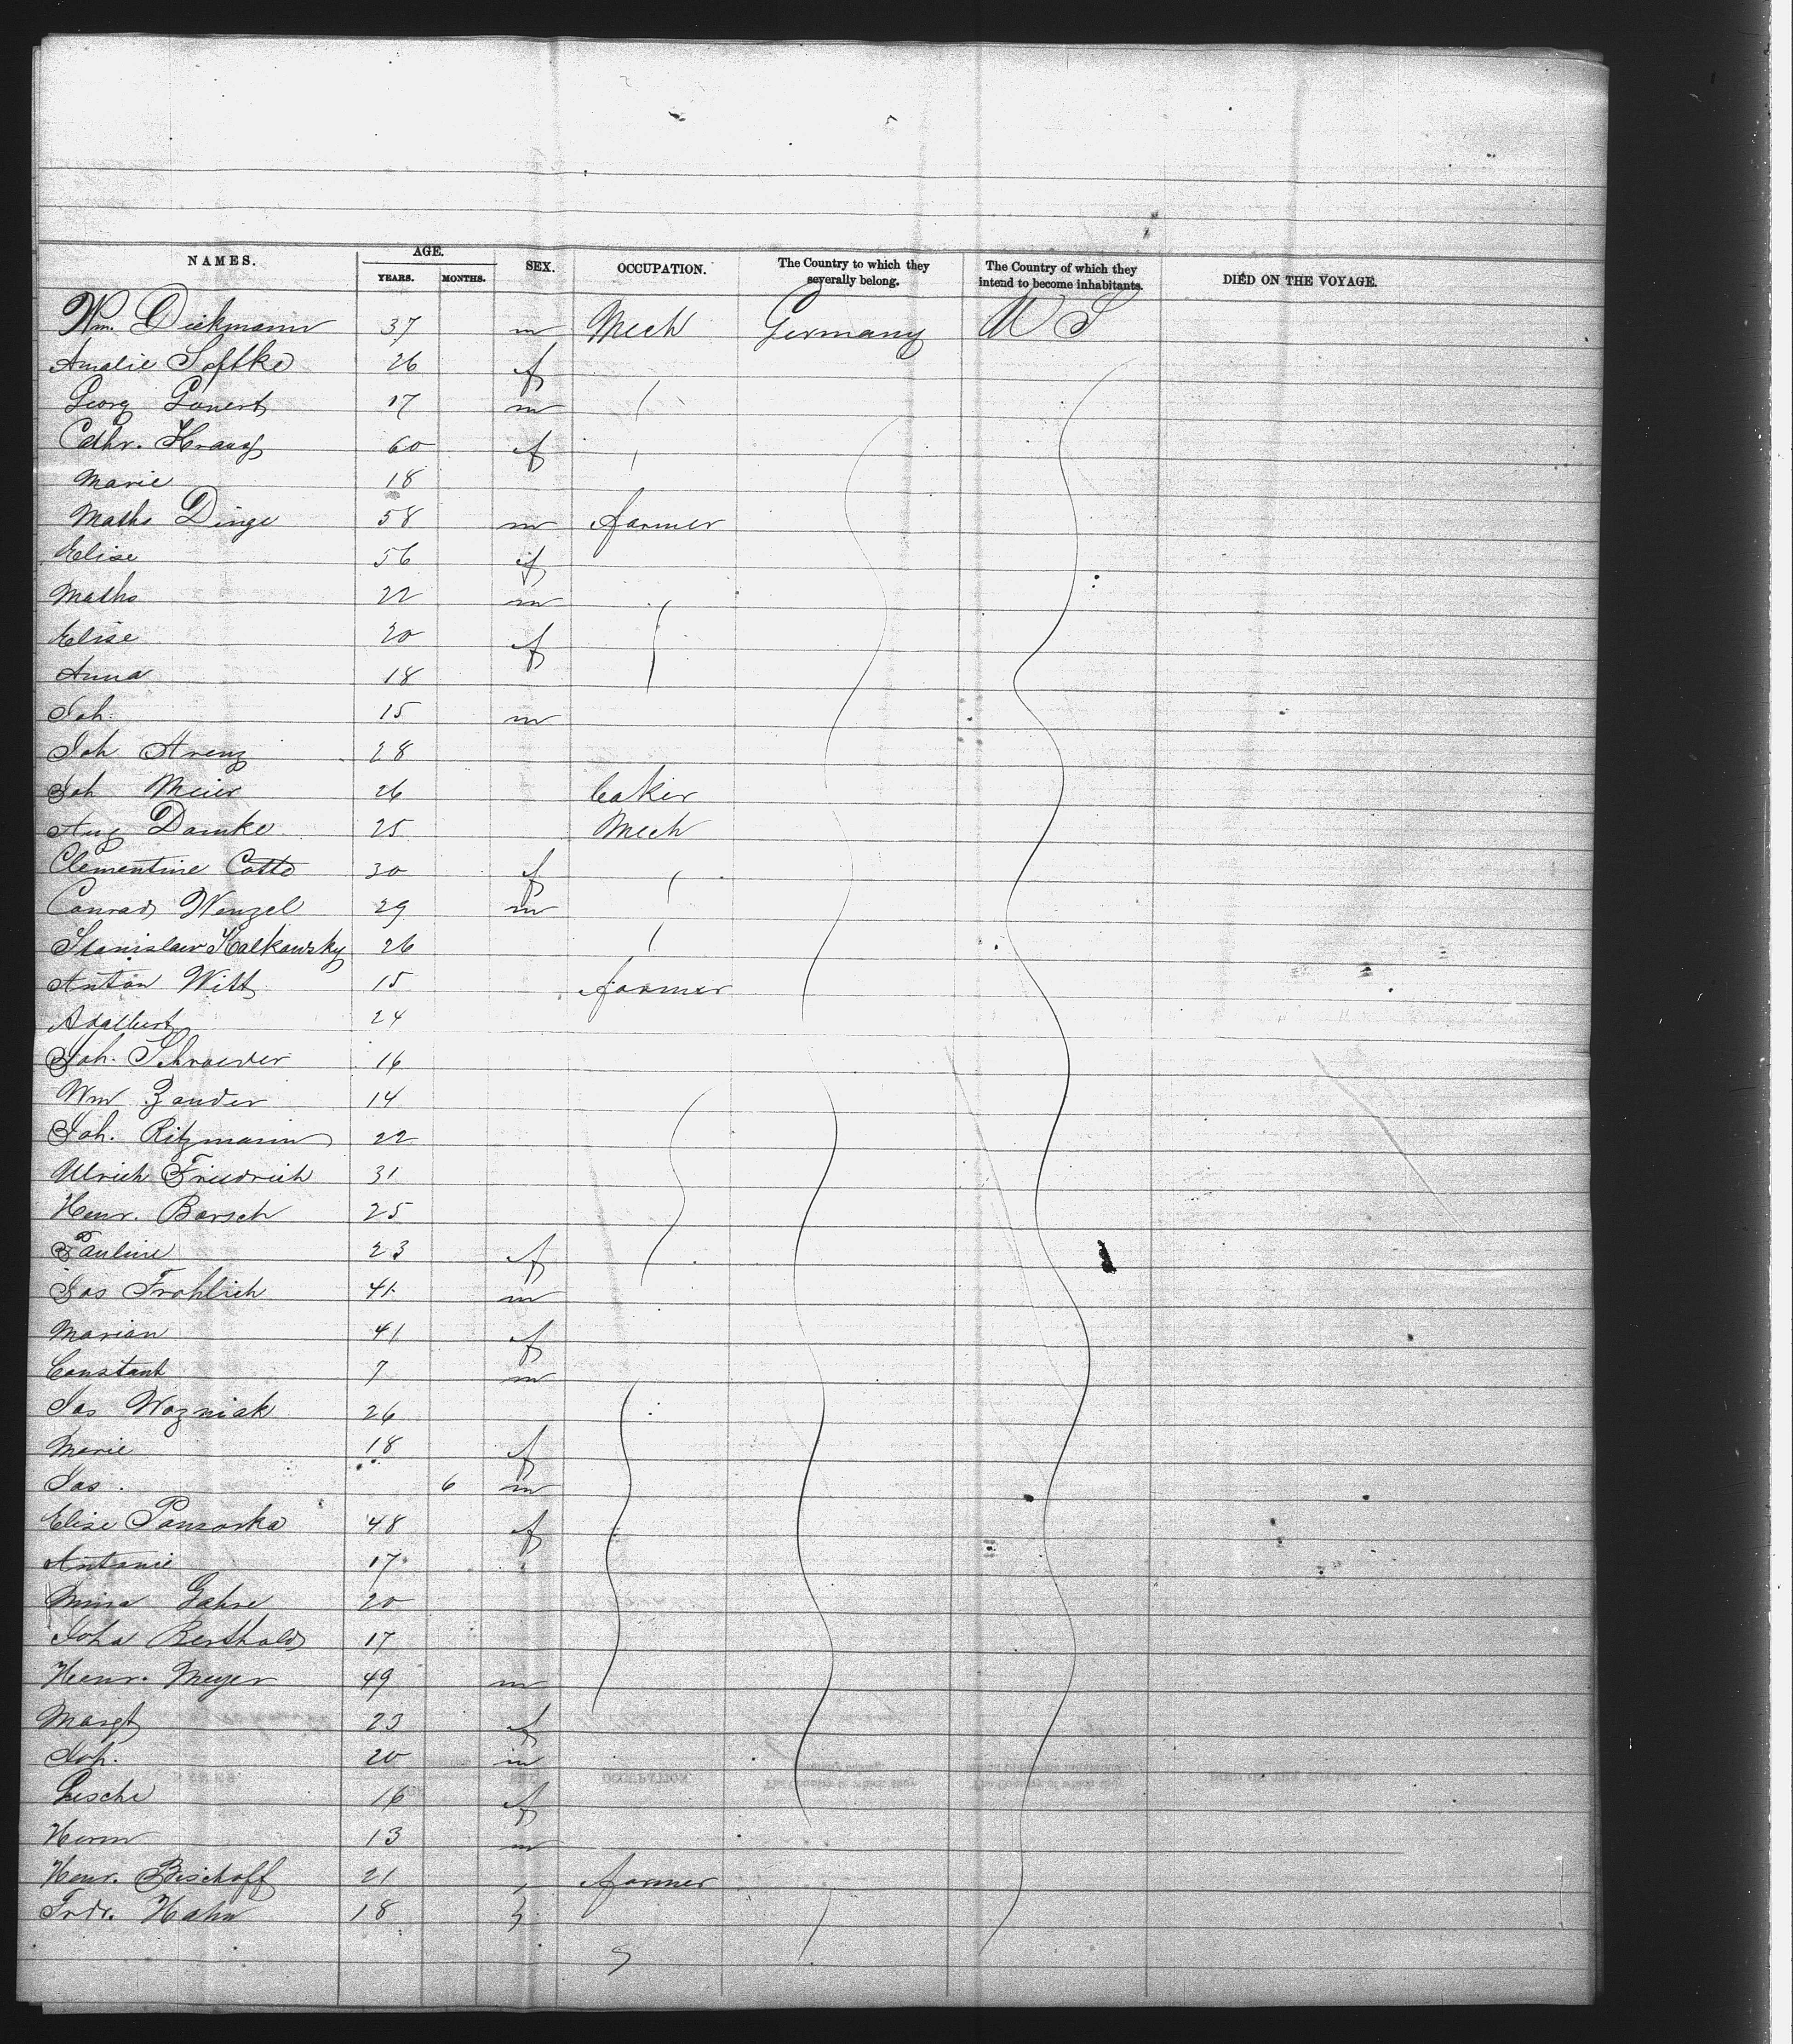 NAMES. AGE. YEARS. MONTHS. SEX. OCCUPATION. The Country to which they severally belong. The Country of which they intend to become inhabitants. DIED ON THE VOYAGE.
Wm. Diekmann 37 m Mech Germany U S
Amalie Seftke 26 f
Georg Gonert 17 m
Cathr. Krauz 60 f
Marie 18
Maths Dinge 58 m farmer
Elise 56 f
Maths 22 m
Elise 20 f
Anna 18
Joh. 15 m
Joh Arenz 28
Joh Meier 26 baker
Aug Damke 25 Mech
Clementine Cotto 30 f
Conrad Wenzel 29 m
Stanislaw Kalkowsky 26
Anton Witt 15 farmer
Adalbert 24
Joh. Schroeder 16
Wm Zander 14
Joh. Ritzmann 22
Ulrich Friedrich 31
Henr. Borsch 25
Pauline 23 f
Jos Frohlich 41 m
Marian 41 f
Constant 7 m
Jos Wozniak 26
Marie 18 f
Jos. 6 m
Elise Pansorka 48 f
Antonie 17
Mina Gahre 20
Joha Berthold 17
Henr. Meyer 49 m
Margt 23 f
Joh. 20 m
Gesche 16 f
Herm 13 m
Henr. Bischoff 21 farmer
Frdr. Hahn 18